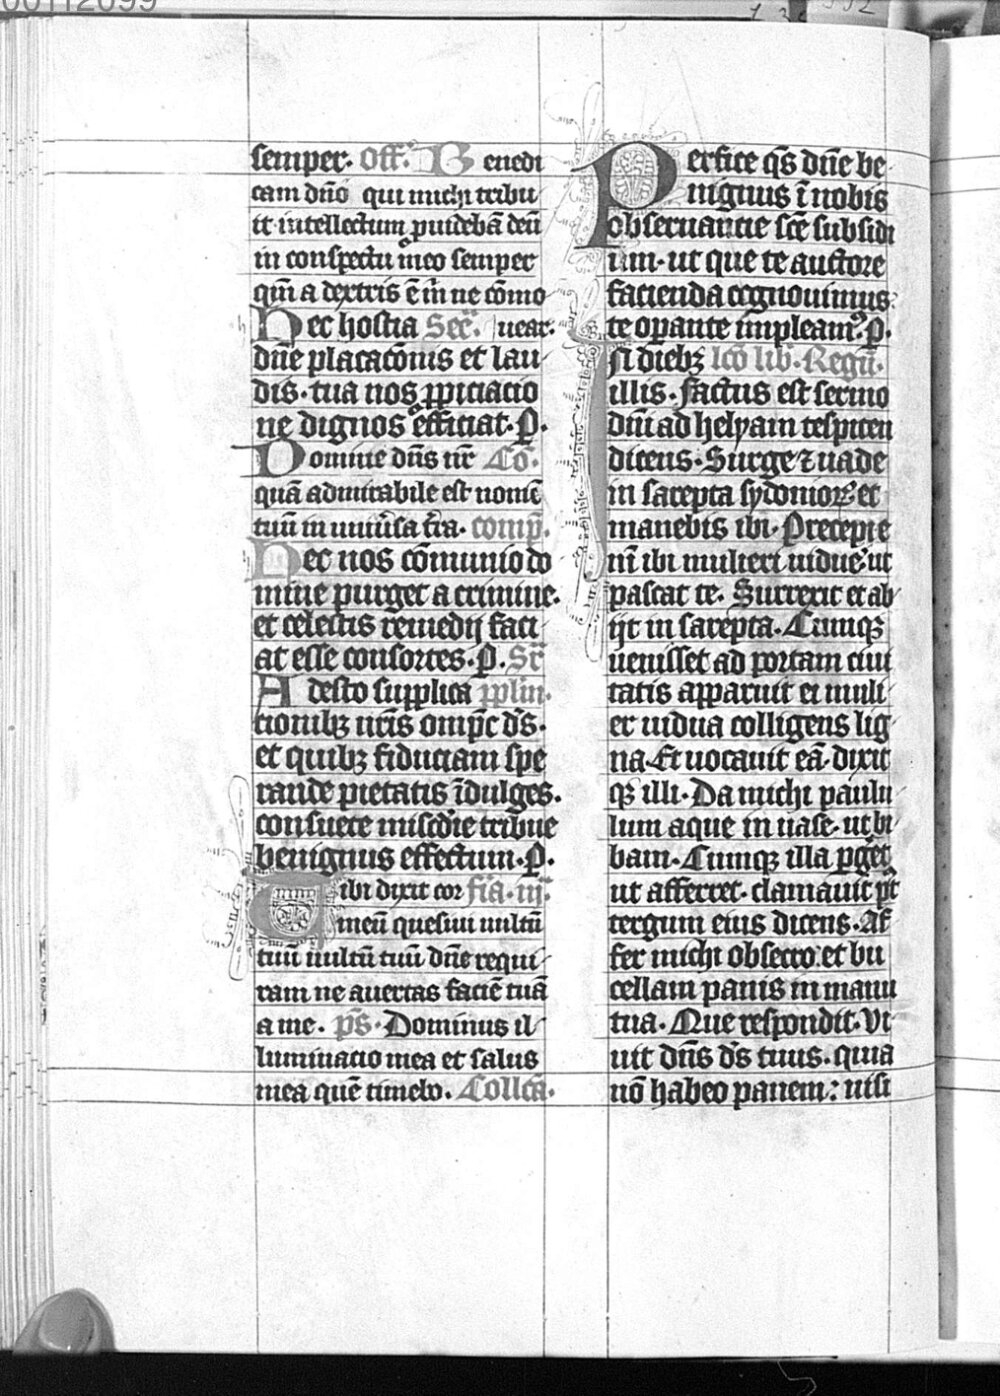 semper. Off̄. Benedi
cam dn̄o qui michi tribu
it intellectum ꝓuidebā deū
in conspectu meo semper
qm̄ a dextris ē m̄ ne cōmo
Hec hostia Sec̄. uear.
dn̄e placacōnis et lau
dis. tua nos ꝓpiciacio
ne dignos efficiat. P.
Domine dn̄s nr̄ Cō.
quā admirabile est nomē
tuū in uniūsa t̄ra. comp̄.
Hec nos cōmunio do
mine purget a crimine.
et celestis remedij faci
at esse consortes. P. Sr̄
Adesto supplica pplm̄.
cionibꝫ nr̄is omp̄c ds̄.
et quibꝫ fiduciam spe
rande pietatis īdulges.
consuete misc̄die tribue
benignus effectum. P.
Tibi dixit cor fīa. iij.
meū quesiui uultū
tuū uultū tuū dn̄e requi
ram ne auertas faciē tuā
a me. ps̄. Dominus il
luminacio mea et salus
mea quē timebo. Collc̄a.
Perfice qs̄ dn̄e be
nignus ī nobis
obseruancie sc̄e subsidi
um. ut que te auctore
facienda cognouimus.
te operante impleamꝰ. P.
In diebꝫ lcō lib̄. Regū.
illis. Factus est sermo
dn̄i ad helyam tespiten
dicens. Surge ⁊ uade
in sarepta sydonioꝝ et
manebis ibi. Precepi e
ni̅ ibi mulieri uidue ut
pascat te. Surrexit et ab
ijt in sarepta. Cumqꝫ
uenisset ad portam ciui
tatis apparuit ei muli
er uidua colligens lig
na. Et uocauit eā. dixit
qꝫ illi. Da michi paulu
lum aque in uase. ut bi
bam. Cumqꝫ illa pget
ut afferret. clamauit pt̄
tergum eius dicens. Af
fer michi obsecro et bu
cellam panis in manu
tua. Que respondit. Vi
uit dn̄s ds̄ tuus. quia
nō habeo panem: nisi